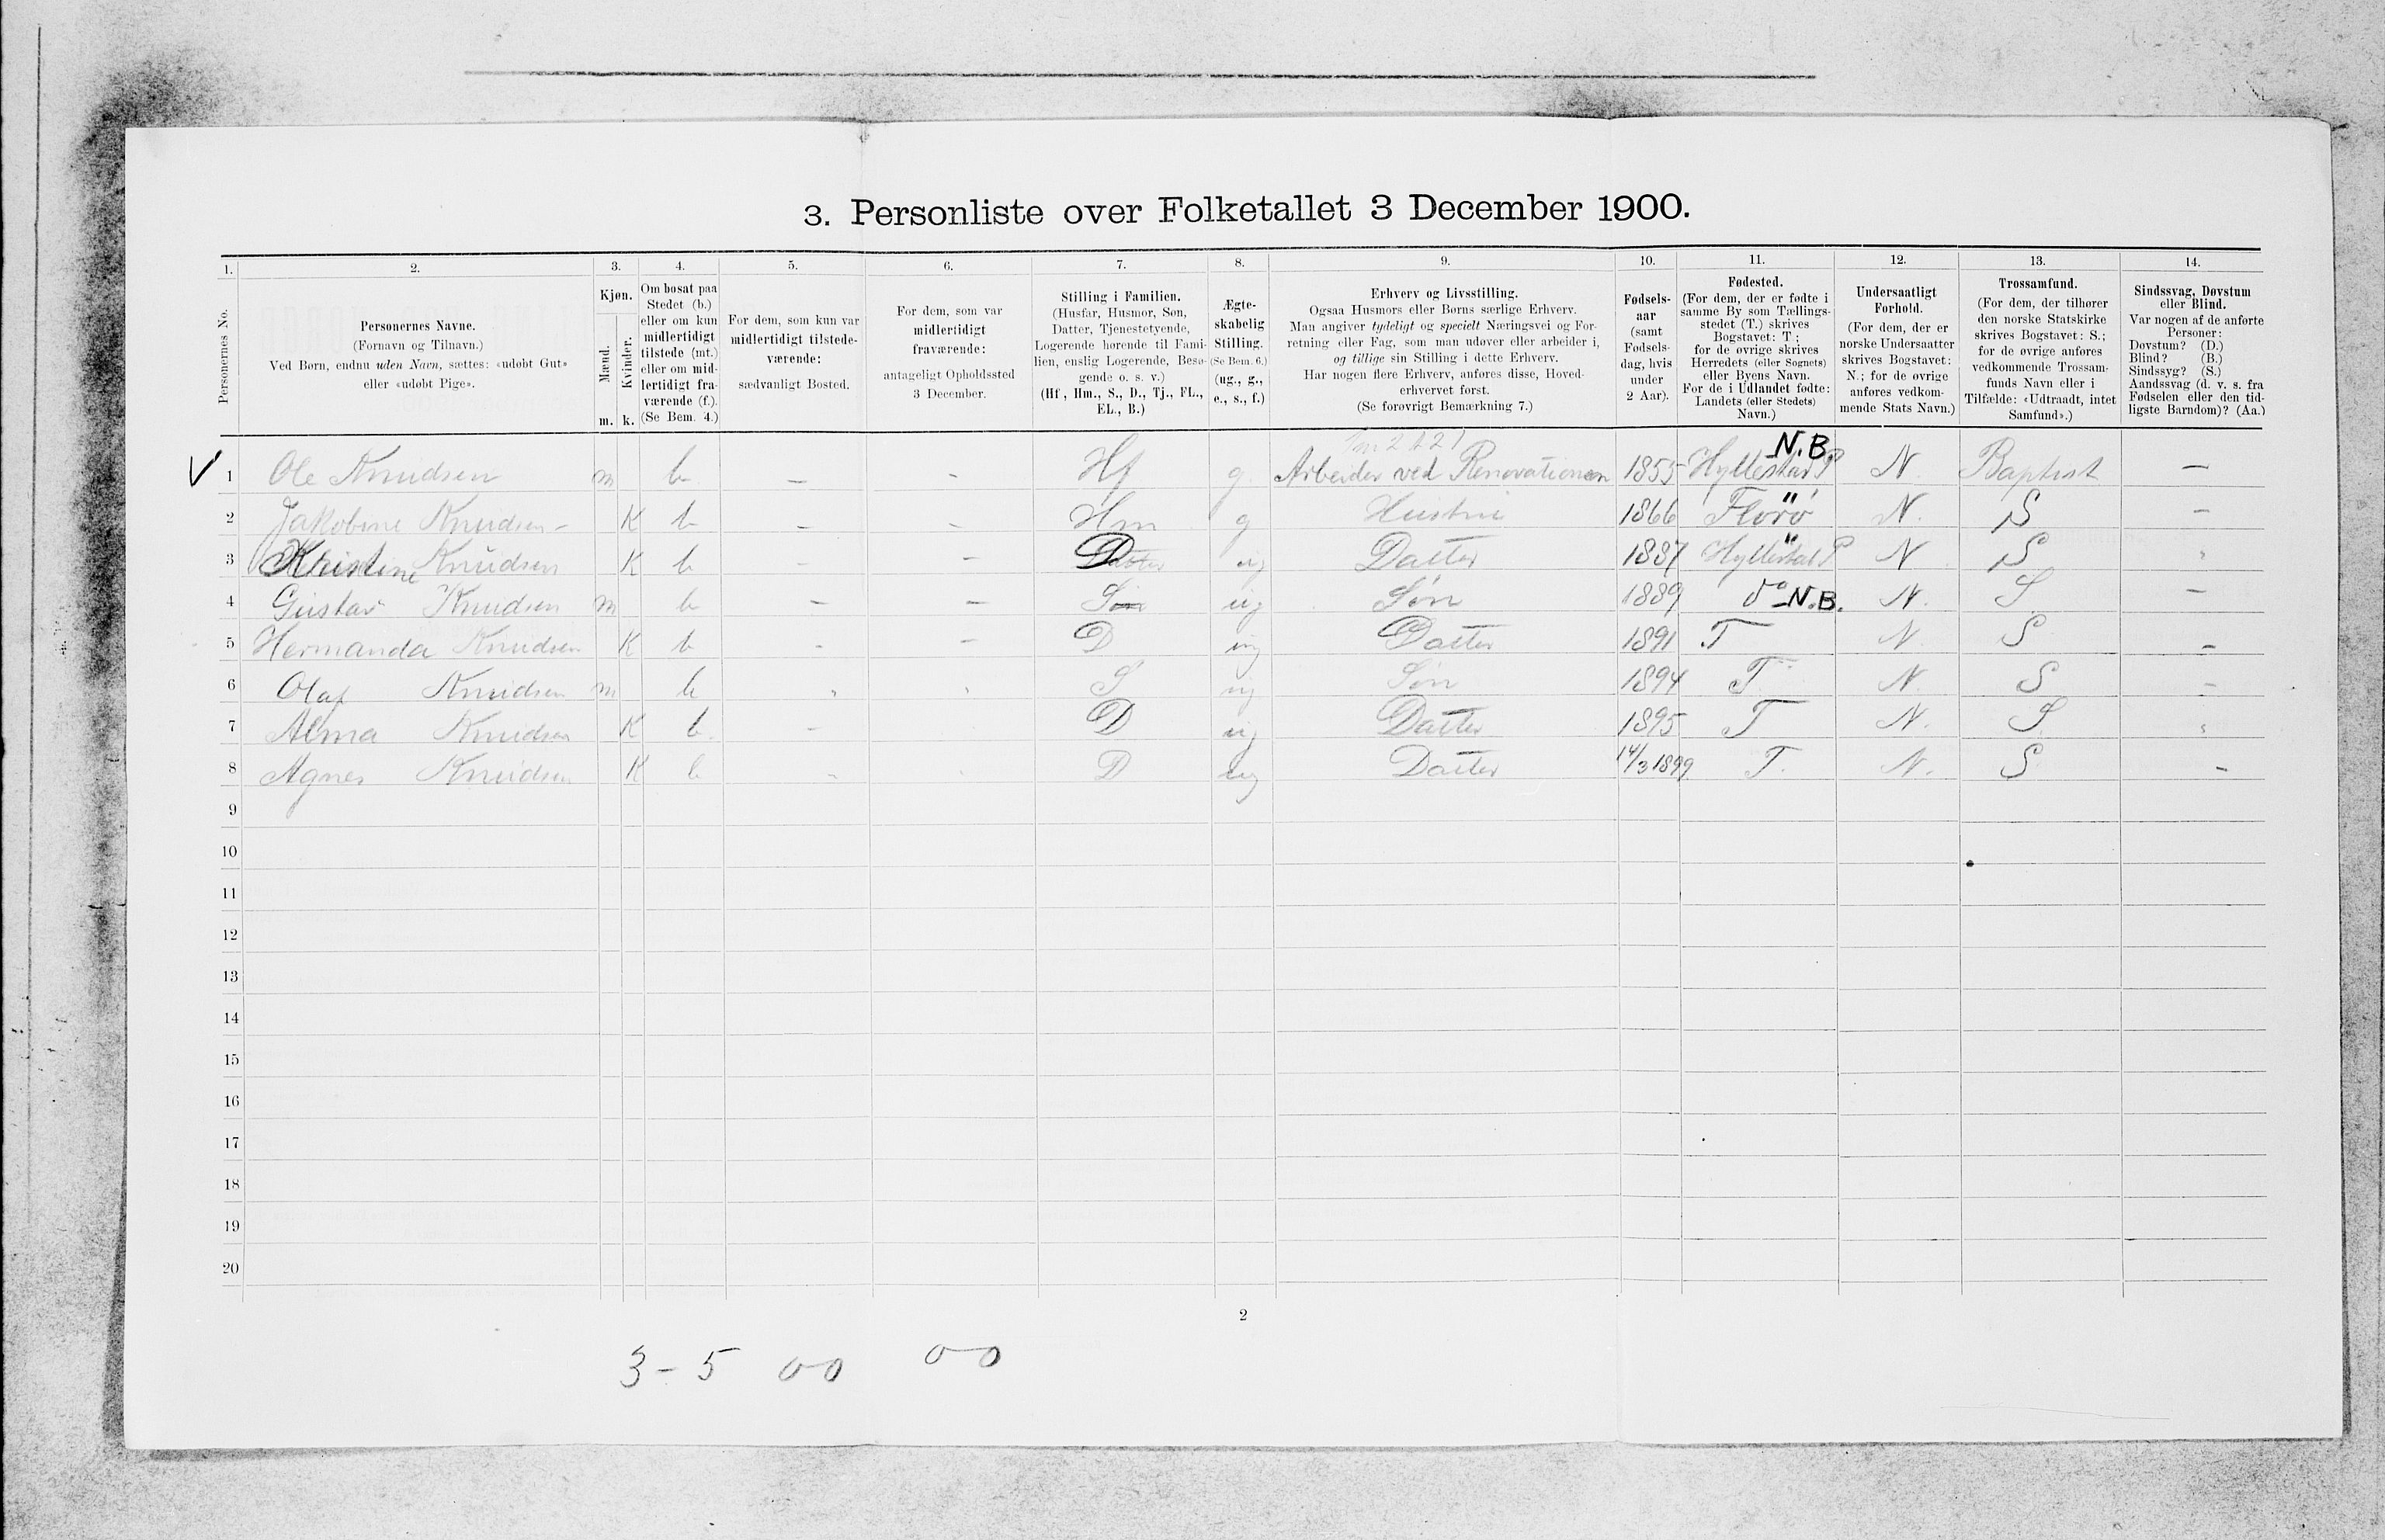 3. Personliste over Folketallet 3 December 1900.
1. 2. 3. 4. 5. 6. 7. 8. 9. 10. 11. 12. 13. 14.
Personernes No.
Personernes Navne.
(Fornavn og Tilnavn.)
Ved Børn, endnu uden Navn, sættes: «udøbt Gut»
eller «udøbt Pige».
Kjøn.
Mænd.
Kvinder.
m. k.
Om bosat paa
Stedet (b.)
eller om kun
midlertidigt
tilstede (mt.)
eller om mid-
lertidigt fra-
værende (f.).
(Se Bem. 4.)
For dem, som kun var
midlertidigt tilstede-
værende:
sædvanligt Bosted.
For dem, som var
midlertidigt
fraværende:
antageligt Opholdssted
3 December.
Stilling i Familien.
(Husfar, Husmor, Søn,
Datter, Tjenestetyende,
Logerende hørende til Fami-
lien, enslig Logerende, Besø-
gende o. s. v.)
(Hf., Hm., S., D., Tj., FL.,
EL., B.)
Ægte-
skabelig
Stilling.
(Se Bem. 6.)
(ug., g.,
e., s., f.)
Erhverv og Livsstilling.
Ogsaa Husmors eller Børns særlige Erhverv.
Man angiver tydeligt og specielt Næringsvei og For-
retning eller Fag, som man udøver eller arbeider i,
og tillige sin Stilling i dette Erhverv.
Har nogen flere Erhverv, anføres disse, Hoved-
erhvervet først.
(Se forøvrigt Bemærkning 7.)
Fødsels-
aar
(samt
Fødsels-
dag, hvis
under
2 Aar).
Fødested.
(For dem, der er fødte i
samme By som Tællings-
stedet (T.) skrives
Bogstavet: T;
for de øvrige skrives
Herredets (eller Sognets)
eller Byens Navn.
For de i Udlandet fødte:
Landets (eller Stedets)
Navn.)
Undersaatligt
Forhold.
(For dem, der er
norske Undersaatter
skrives Bogstavet:
N.; for de øvrige
anføres vedkom-
mende Stats Navn.)
Trossamfund.
(For dem, der tilhører
den norske Statskirke
skrives Bogstavet: S.;
for de øvrige anføres
vedkommende Trossam-
funds Navn eller i
Tilfælde: «Udtraadt, intet
Samfund».)
Sindssvag, Døvstum
eller Blind.
Var nogen af de anførte
Personer:
Døvstum? (D.)
Blind? (B.)
Sindssyg? (S.)
Aandssvag (d. v. s. fra
Fødselen eller den tid-
ligste Barndom)? (Aa.)
N.B.
V 1 Ole Knudsen m b - - Hf g. Arbeider ved Renovationen 1855 Hyllestad P N. Baptist -
2 Jakobine Knudsen - K b - - Hm g Hustru 1866 Florø N. S -
3 Kristine Knudsen K b - - D ug Datter 1887 Hyllestad P N S "
4 Gustav Knudsen m b - - Søn ug Søn 1889 do N.B. N. S -
5 Hermanda Knudsen K b - - D ug Datter 1891 T N. S -
6 Olaf Knudsen m b " " S ug Søn 1894 T N. S -
7 Alma Knudsen K b. - D ug Datter 1895 T N. S "
8 Agnes Knudsen K b - - D ug Datter 14/3 1899 T. N. S -
9
10
11
12
13
14
15
16
17
18
19
20
2
3 - 5 00 0-0